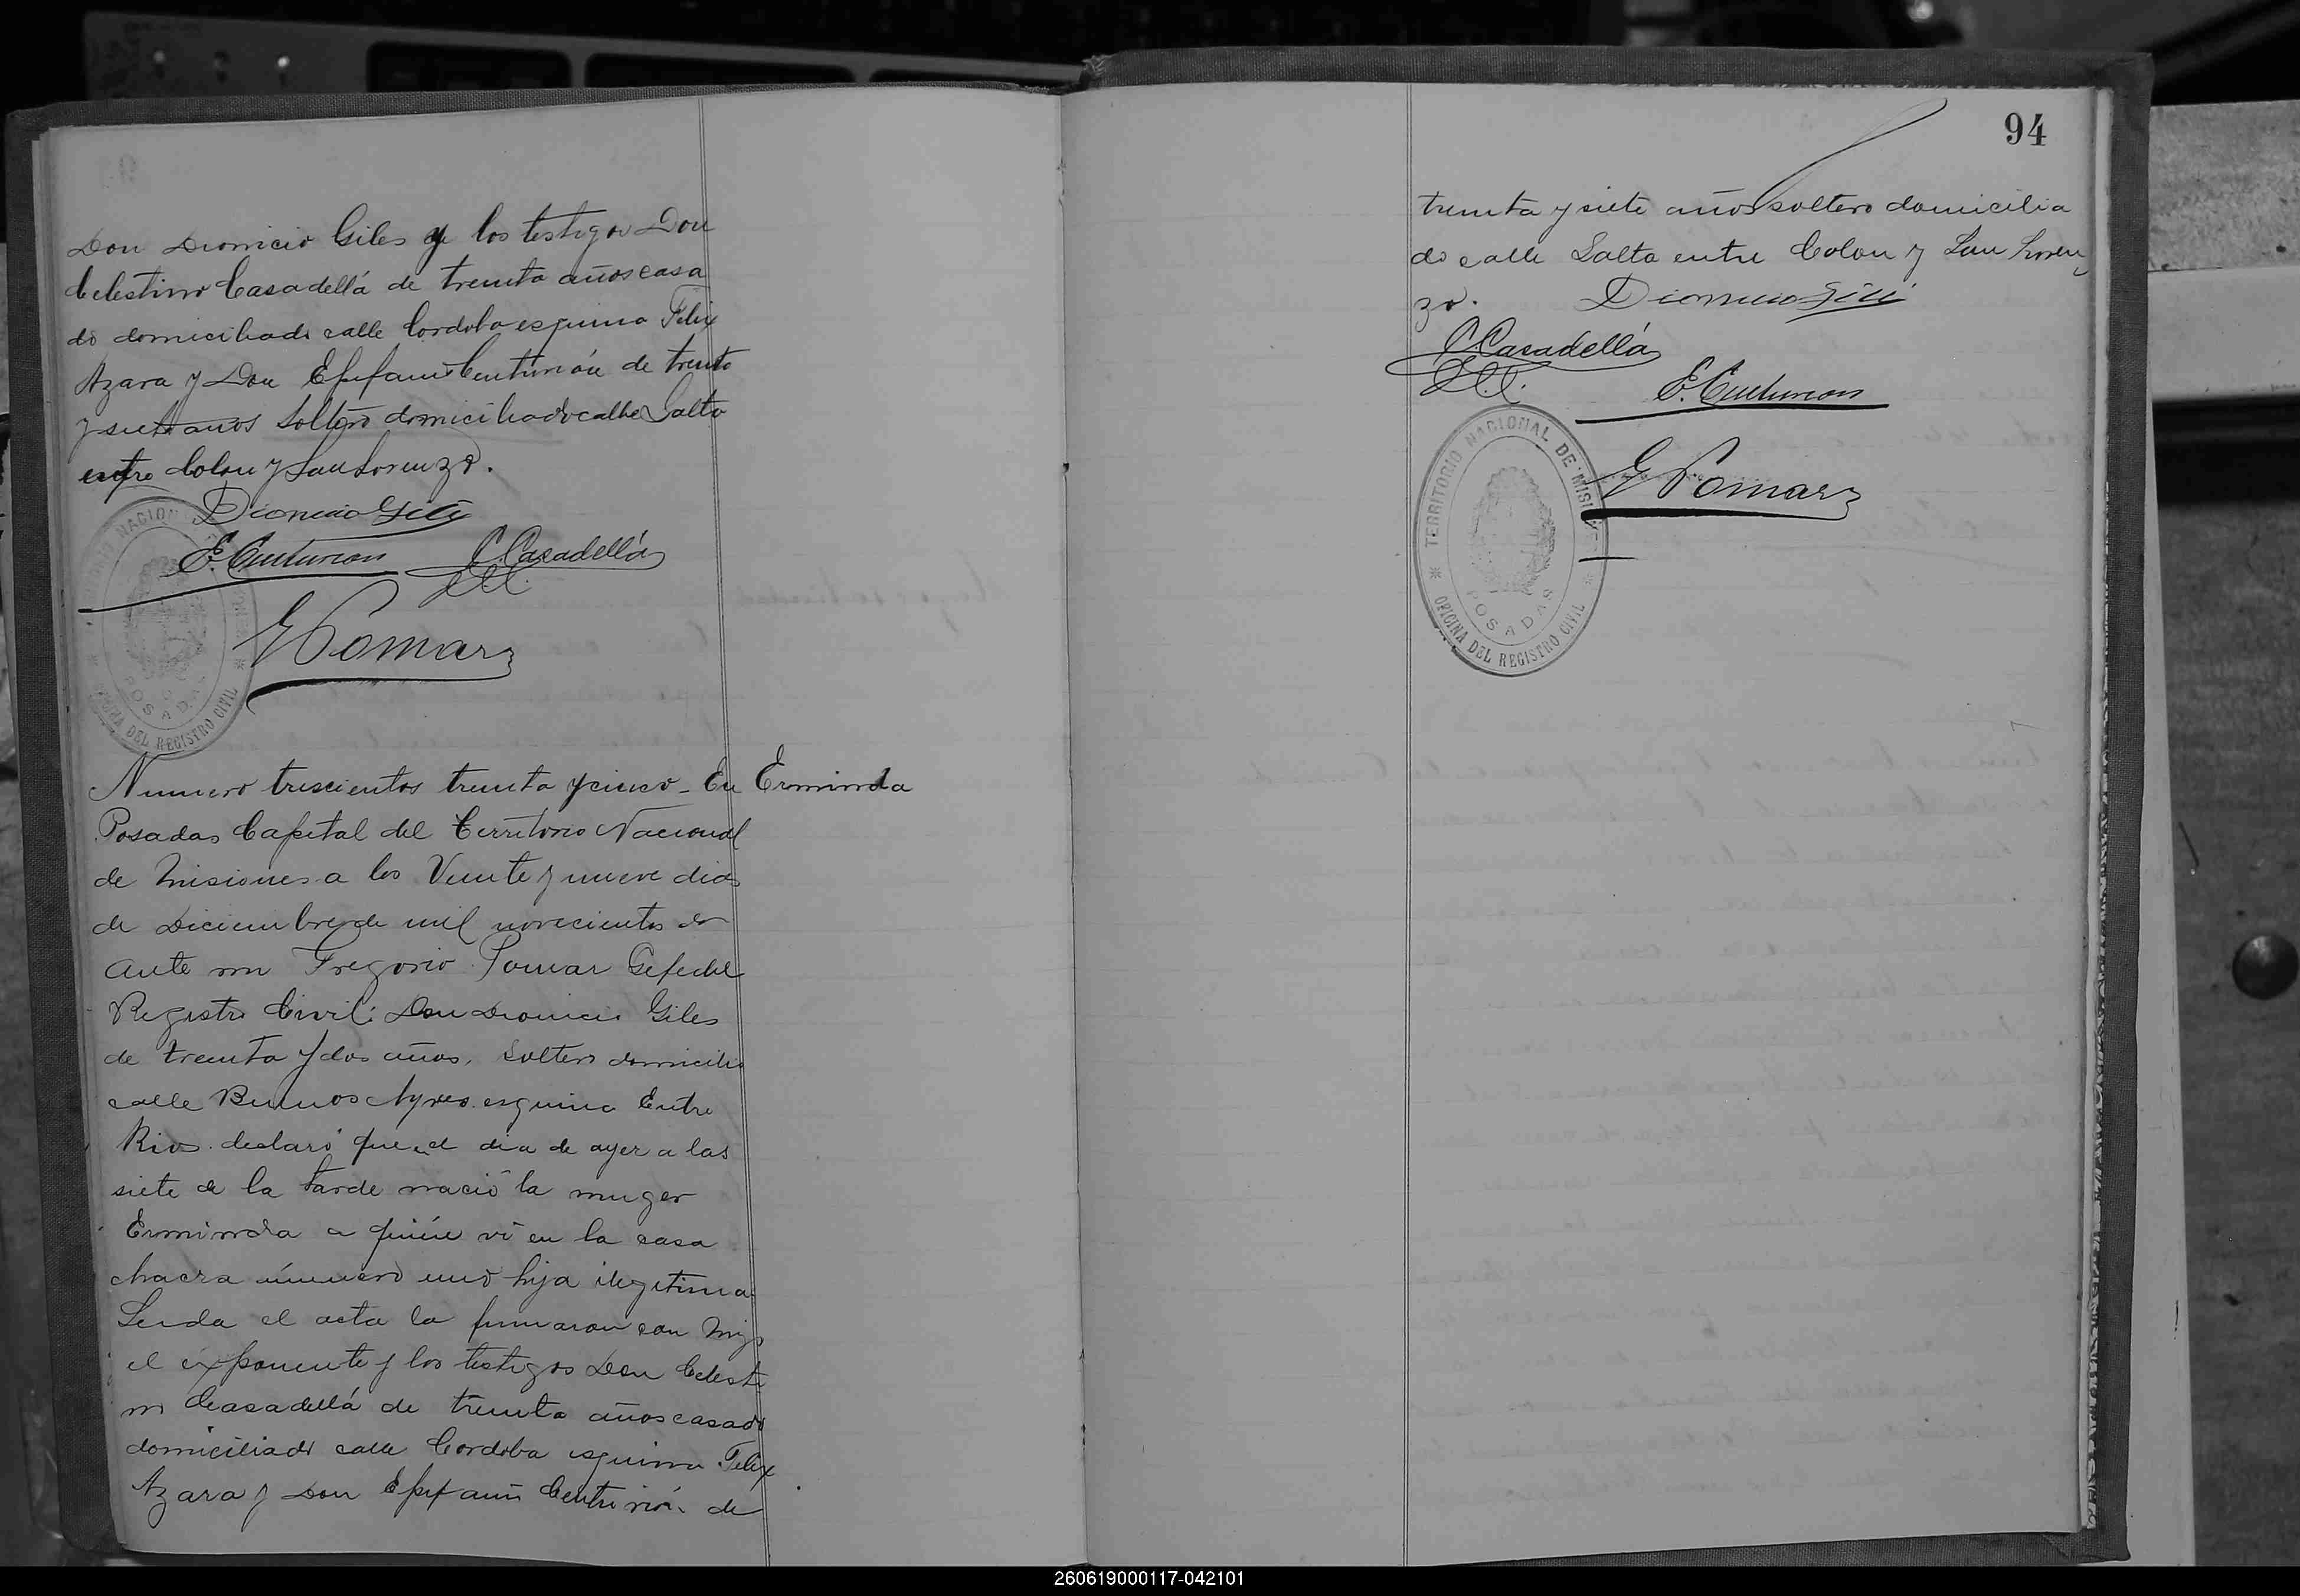 Don Dionicio Giles y los testigos Don
Celestino Casadellá de treinta años casa
do domiciliado calle Cordoba esquina Felix
Azara y Don Epifanio Centurión de treinta
y siete años soltero domiciliado calle Salta
entre Colon y San Lorenzo.
Dionicio Giles
E. Centurion C. Casadellá
G Pomar
TERRITORIO NACIONAL DE MISIONES
POSADAS
OFICINA DEL REGISTRO CIVIL
Numero trescientos treinta y cinco - En
Erminda
Posadas Capital del Territorio Nacional
de Misiones a los Veinte y nueve dias
de Diciembre de mil novecientos dos
ante mi Gregorio Pomar Gefe del
Registro Civil: Don Dionicio Giles
de treinta y dos años, soltero domicilio
calle Buenos Ayres esquina Entre
Rios declaró que el dia de ayer a las
siete de la tarde nació la muger
Erminda a quién vi en la casa
chacra número uno hija ilegitima
Leida el acta la firmaron con migo
el exponente y los testigos Don Celesti
no Casadellá de treinta años casado
domiciliado calle Cordoba esquina Felix
Azara y Don Epifanio Centurión de
94
treinta y siete años soltero domicilia
do calle Salta entre Colon y San Loren
zo. Dionicio Giles
C. Casadellá
E. Centurion
G Pomar
TERRITORIO NACIONAL DE MISIONES
POSADAS
OFICINA DEL REGISTRO CIVIL
260619000117-042101